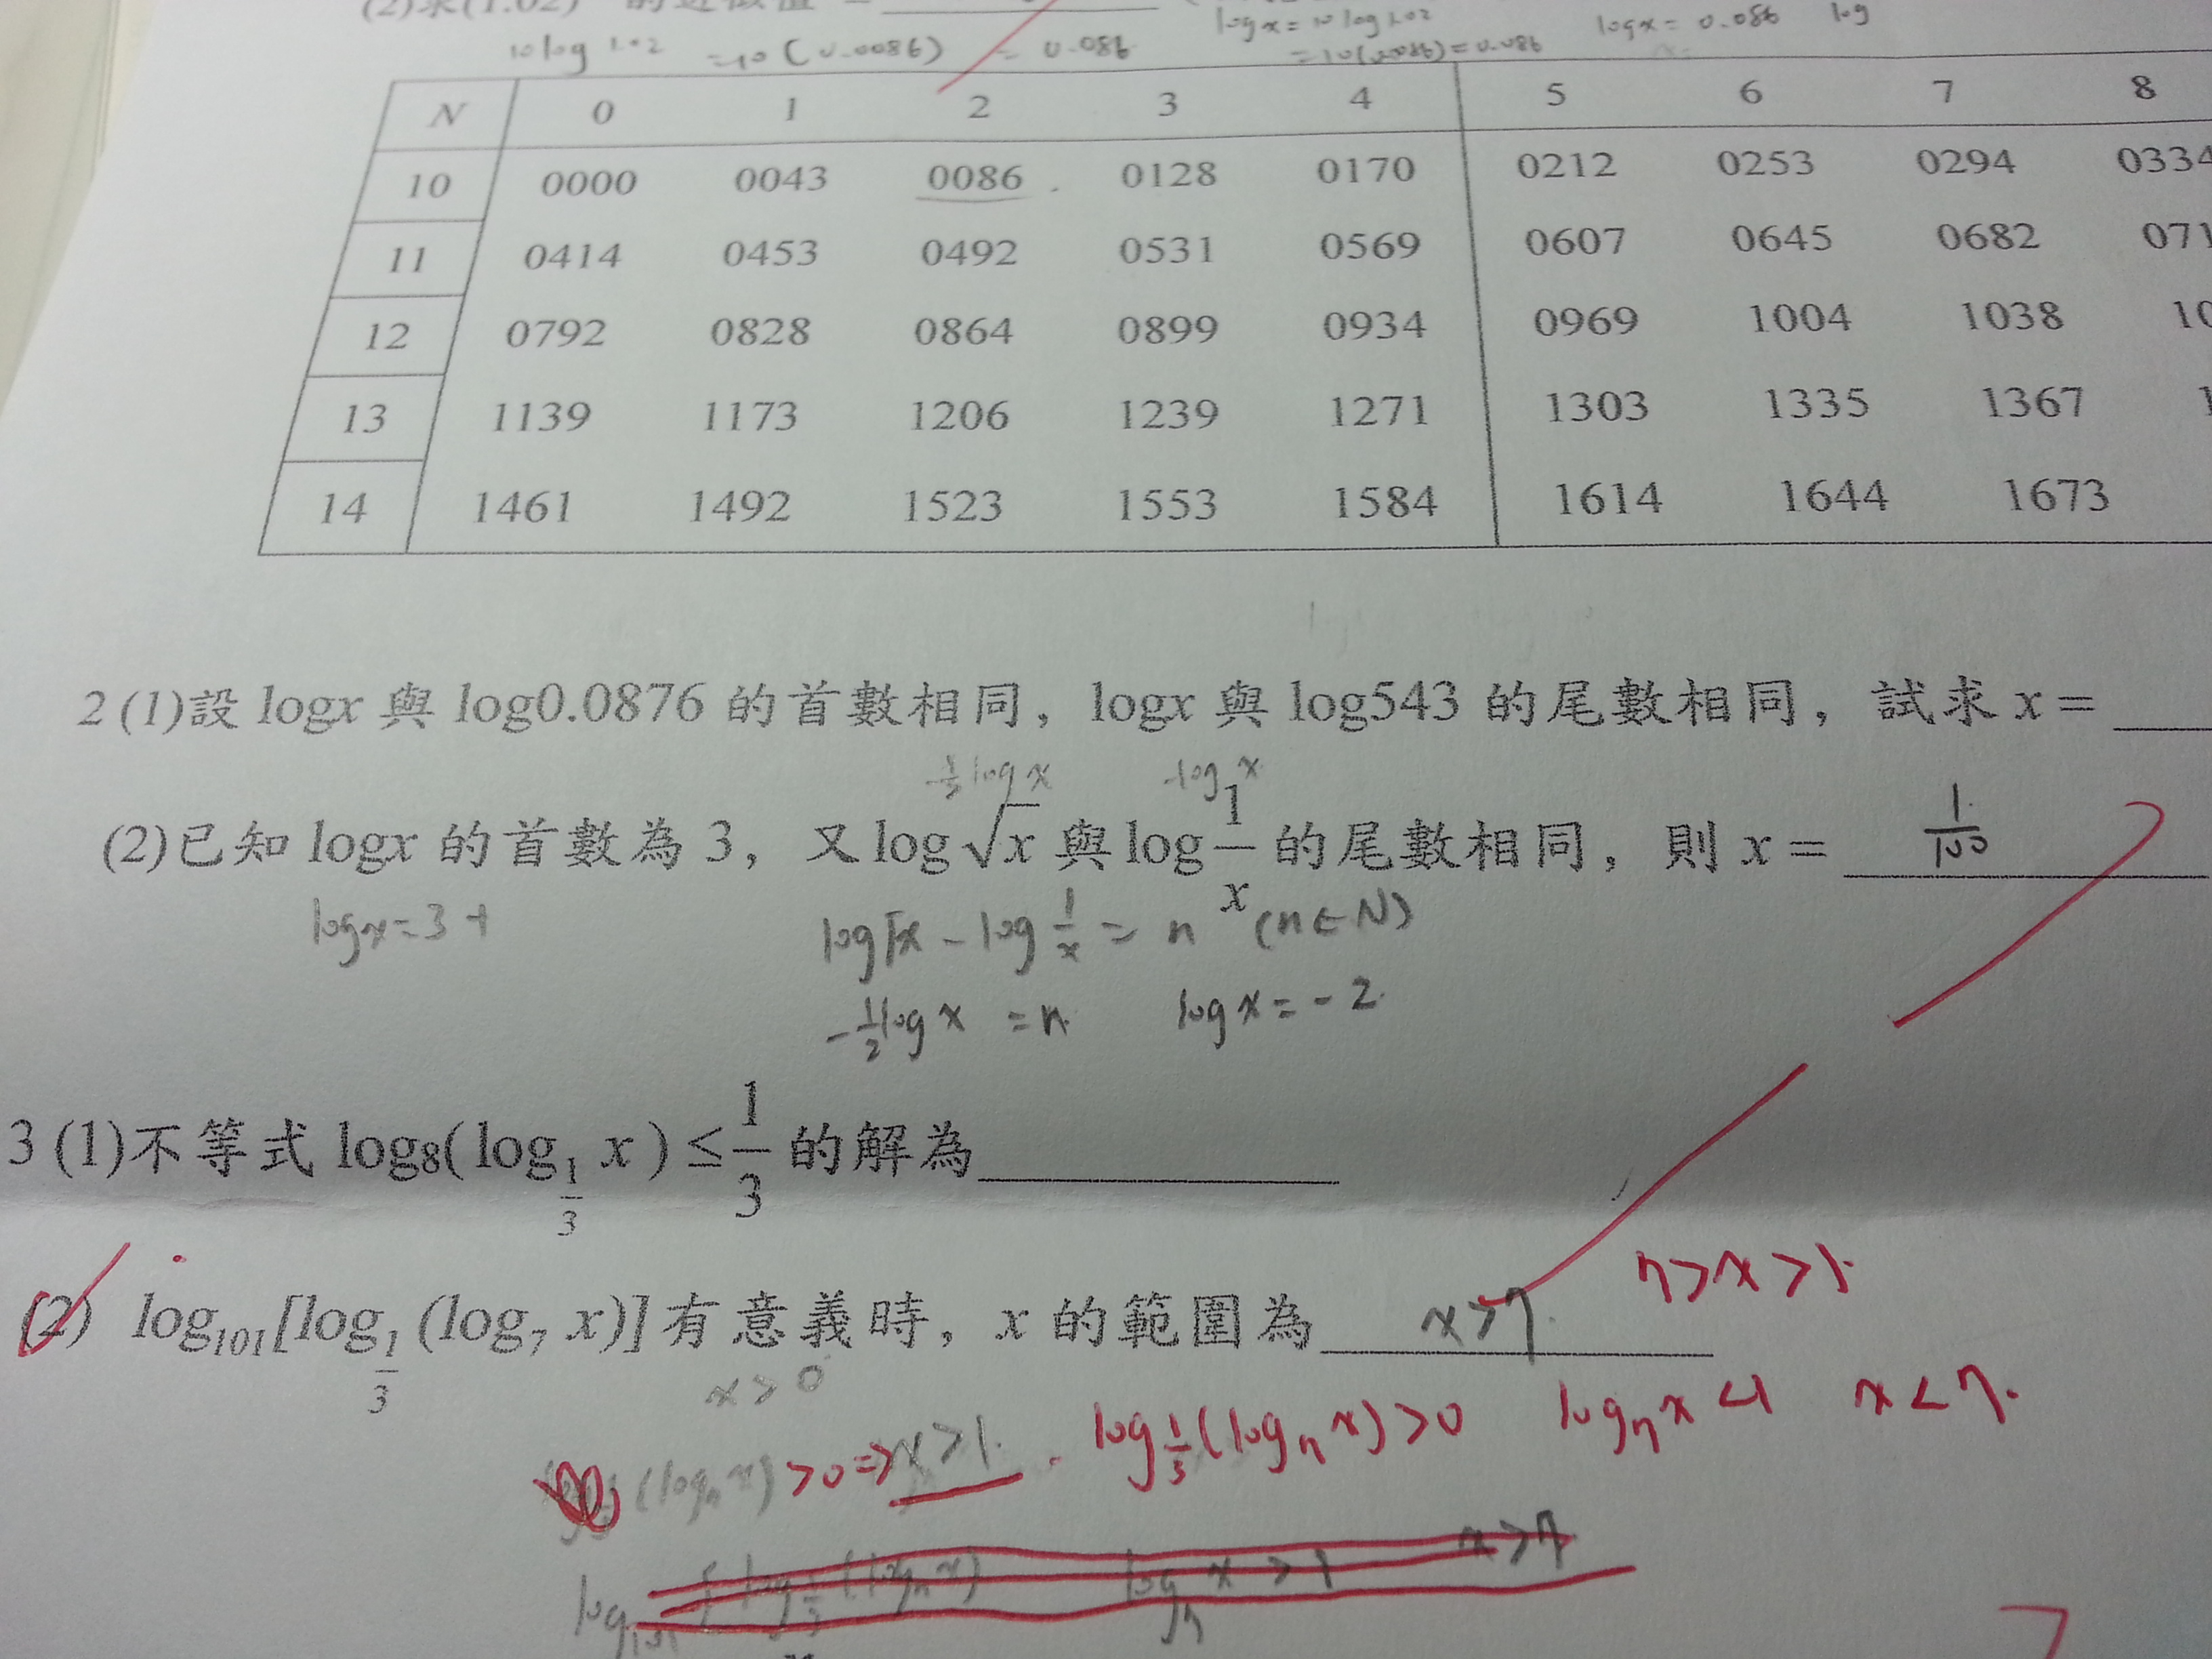 (2)求(1.02) 的近似值 =
log x = 10 log 1.02 log x = 0.086 log
10 log 1.02 = 10 (0.0086) = 0.086 = 10(0.0086) = 0.086
N 0 1 2 3 4 5 6 7 8
10 0000 0043 0086 0128 0170 0212 0253 0294 0334
11 0414 0453 0492 0531 0569 0607 0645 0682 071
12 0792 0828 0864 0899 0934 0969 1004 1038 10
13 1139 1173 1206 1239 1271 1303 1335 1367 1
14 1461 1492 1523 1553 1584 1614 1644 1673
2 (1)設 logx 與 log0.0876 的首數相同，logx 與 log543 的尾數相同，試求 x =
log x -log x
(2)已知 logx 的首數為 3，又 log √x 與 log 1/x 的尾數相同，則 x = 1/100
log x = 3 +
log √x - log 1/x = n (n ∈ N)
-1/2 log x = n log x = -2
3 (1)不等式 log₈( log_{1/3} x ) ≤ 1/3 的解為
(2) log₁₀₁[log_{1/3} (log₇ x)] 有意義時，x 的範圍為 x > 7 7 > x > 1
x > 0
(log₇ x) > 0 ⇒ x > 1 . log_{1/3} (log₇ x) > 0 log₇ x < 1 x < 7.
log₁₀₁ [ log_{1/3} (log₇ x) log₇ x > 1 x > 7